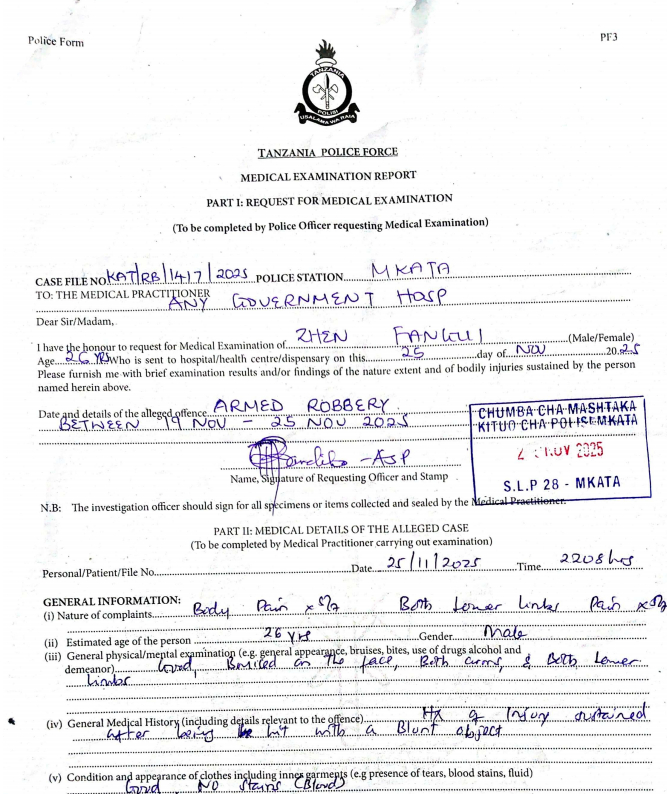 Police Form
PF3
TANZANIA
POLISI
USALAMA WA RAIA
TANZANIA POLICE FORCE
MEDICAL EXAMINATION REPORT
PART I: REQUEST FOR MEDICAL EXAMINATION
(To be completed by Police Officer requesting Medical Examination)
CASE FILE NO. KAT/RB/1417/2025 POLICE STATION... MKATA
TO: THE MEDICAL PRACTITIONER
ANY GOVERNMENT HOSP
Dear Sir/Madam,
I have the honour to request for Medical Examination of ZHEN FANGUI (Male/Female)
Age 26 YRS Who is sent to hospital/health centre/dispensary on this 25 day of NOV 20 25
Please furnish me with brief examination results and/or findings of the nature extent and of bodily injuries sustained by the person
named herein above.
Date and details of the alleged offence. ARMED ROBBERY
BETWEEN 19 NOV - 25 NOV 2025
CHUMBA CHA MASHTAKA
KITUO CHA POLISI MKATA
NOV 2025
S.L.P 28 - MKATA
- ASP
Name, Signature of Requesting Officer and Stamp
N.B: The investigation officer should sign for all specimens or items collected and sealed by the Medical Practitioner.
PART II: MEDICAL DETAILS OF THE ALLEGED CASE
(To be completed by Medical Practitioner carrying out examination)
Personal/Patient/File No. Date 25/11/2025 Time 2208 hrs
GENERAL INFORMATION:
(i) Nature of complaints Body Pain x 5/7 Both Lower limbs Pain x 5/7
(ii) Estimated age of the person 26 yrs Gender Male
(iii) General physical/mental examination (e.g. general appearance, bruises, bites, use of drugs alcohol and
demeanor) Good, Bruised on the face, Both arms, & Both Lower
limbs
(iv) General Medical History (including details relevant to the offence) Hx of Injury sustained
after being hit with a Blunt object
(v) Condition and appearance of clothes including inner garments (e.g presence of tears, blood stains, fluid)
Good, NO stains (Blood)